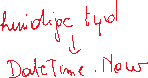 huidige tyd
DateTime.Now